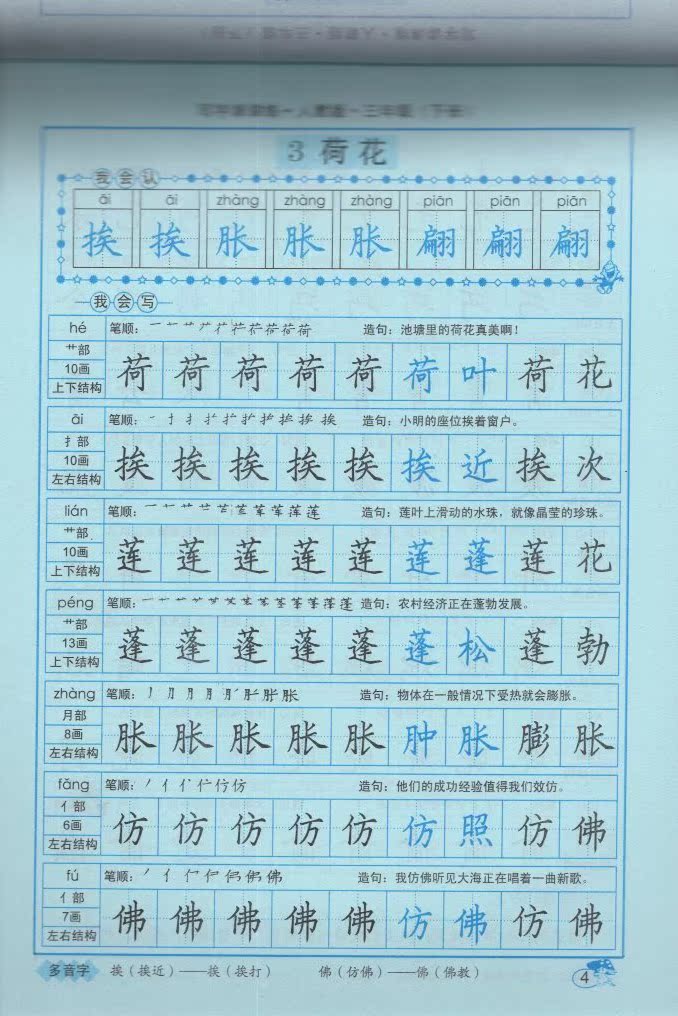 写字课课练·人教版·三年级（下册）
3 荷花
我会认
āi āi zhàng zhàng zhàng piān piān piān
挨 挨 胀 胀 胀 翩 翩 翩
我会写
hé 笔顺： 造句：池塘里的荷花真美啊！
艹部
10画
上下结构
荷 荷 荷 荷 荷 荷 叶 荷 花
āi 笔顺： 造句：小明的座位挨着窗户。
扌部
10画
左右结构
挨 挨 挨 挨 挨 挨 近 挨 次
lián 笔顺： 造句：莲叶上滑动的水珠，就像晶莹的珍珠。
艹部
10画
上下结构
莲 莲 莲 莲 莲 莲 蓬 莲 花
péng 笔顺： 造句：农村经济正在蓬勃发展。
艹部
13画
上下结构
蓬 蓬 蓬 蓬 蓬 蓬 松 蓬 勃
zhàng 笔顺： 造句：物体在一般情况下受热就会膨胀。
月部
8画
左右结构
胀 胀 胀 胀 胀 肿 胀 膨 胀
fǎng 笔顺： 造句：他们的成功经验值得我们效仿。
亻部
6画
左右结构
仿 仿 仿 仿 仿 仿 照 仿 佛
fú 笔顺： 造句：我仿佛听见大海正在唱着一曲新歌。
亻部
7画
左右结构
佛 佛 佛 佛 佛 仿 佛 仿 佛
多音字 挨（挨近）——挨（挨打） 佛（仿佛）——佛（佛教）
4